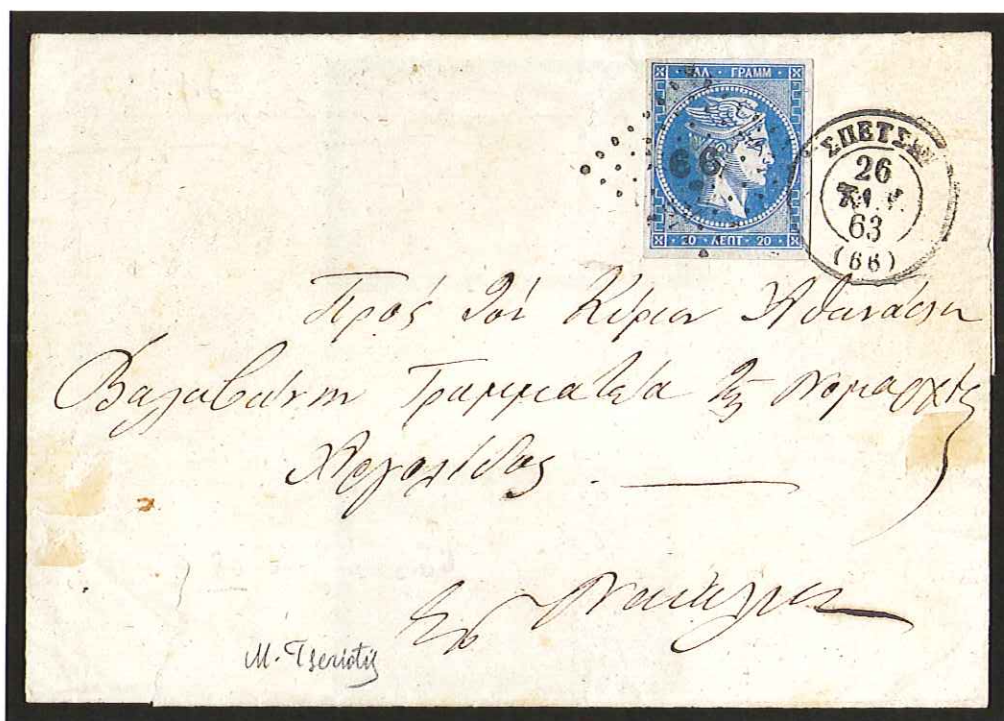 ΕΛΛ · ΓΡΑΜΜ
66
20 · ΛΕΠΤ · 20
ΣΠΕΤΣΑΙ
26
63
(66)
Πρὸς τὸν Κύριον Ἀθανάσιον
Βαλαβάνην Γραμματέα τῆς Νομαρχίας
Ἀργολίδος.
Εἰς Ναύπλιον
M. Tseriotis